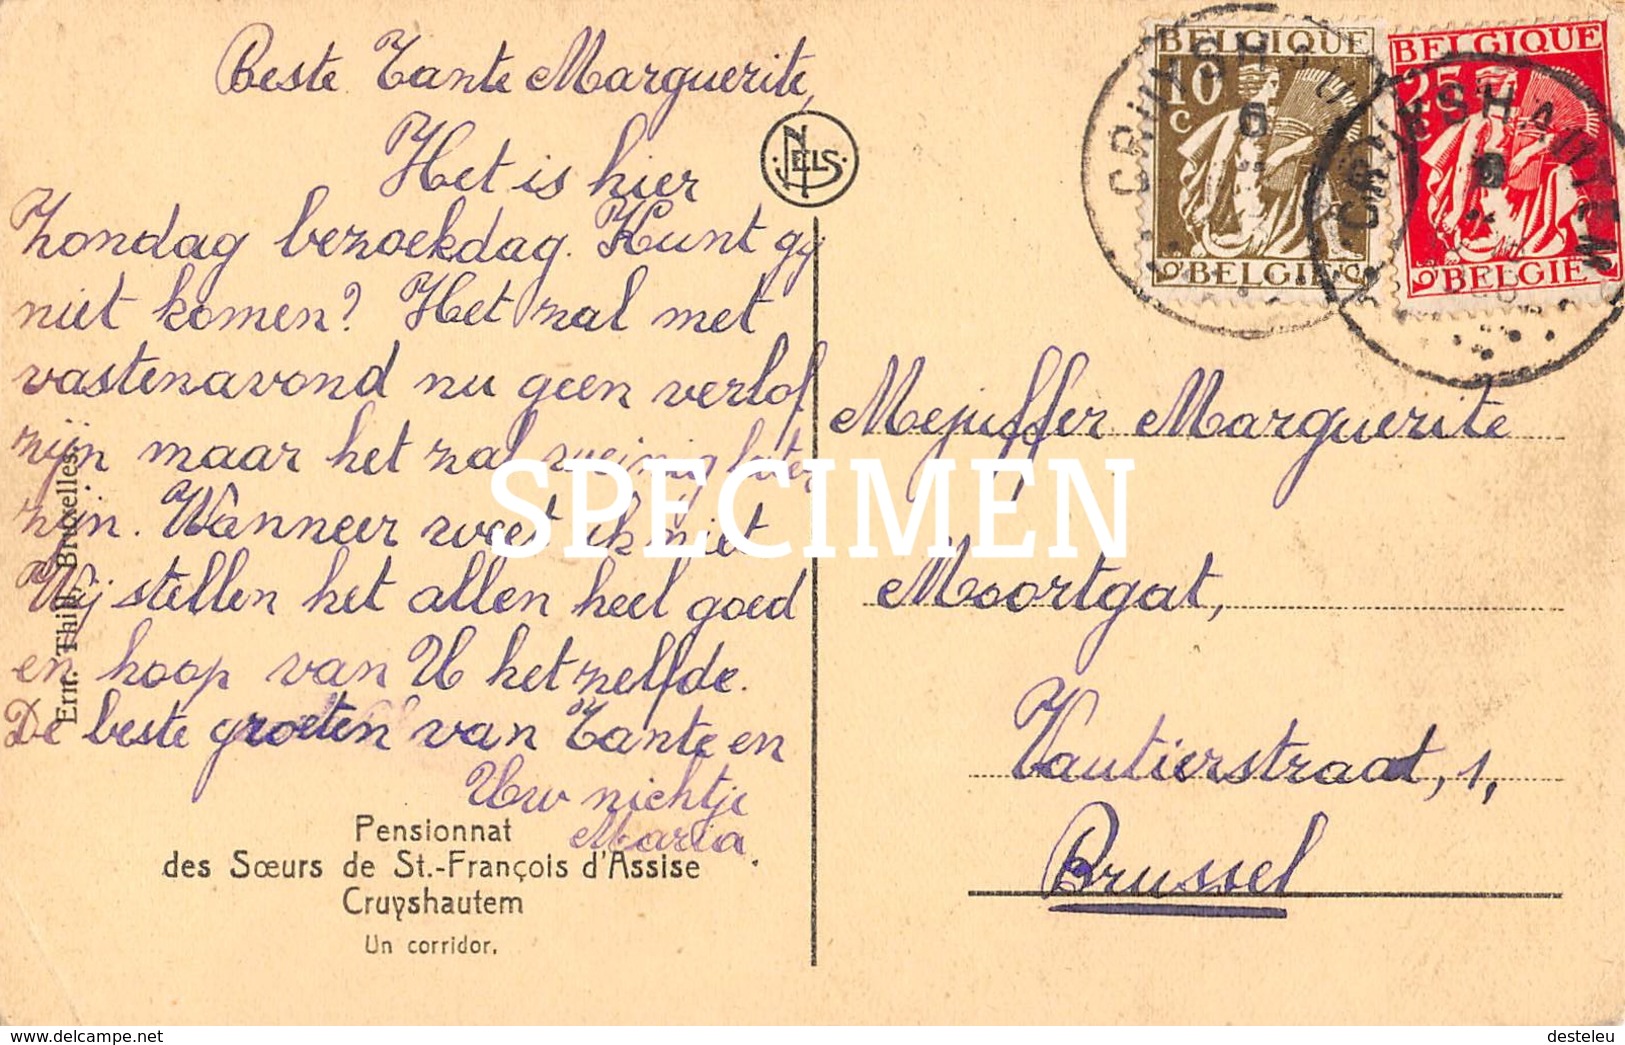 Beste Tante Marguerite,
Het is hier
Zondag bezoekdag. Kunt gy
niet komen? Het zal met
vastenavond nu geen verlof
zijn maar het zal weinig later
zijn. Wanneer weet ik niet
Wij stellen het allen heel goed
en hoop van U hetzelfde.
De beste groeten van Tante en
Uw nichtje
Maria
Pensionnat
des Sœurs de St.-François d'Assise
Cruyshautem
Un corridor.
Ern. Thill, Bruxelles.
NELS
BELGIQUE
10
c
BELGIE
BELGIQUE
25
BELGIE
CRUYSHAUTEM
6
Mejuffer Marguerite
Moortgat,
Vautierstraat, 1,
Brussel
SPECIMEN
akpool.co.uk
desteleu